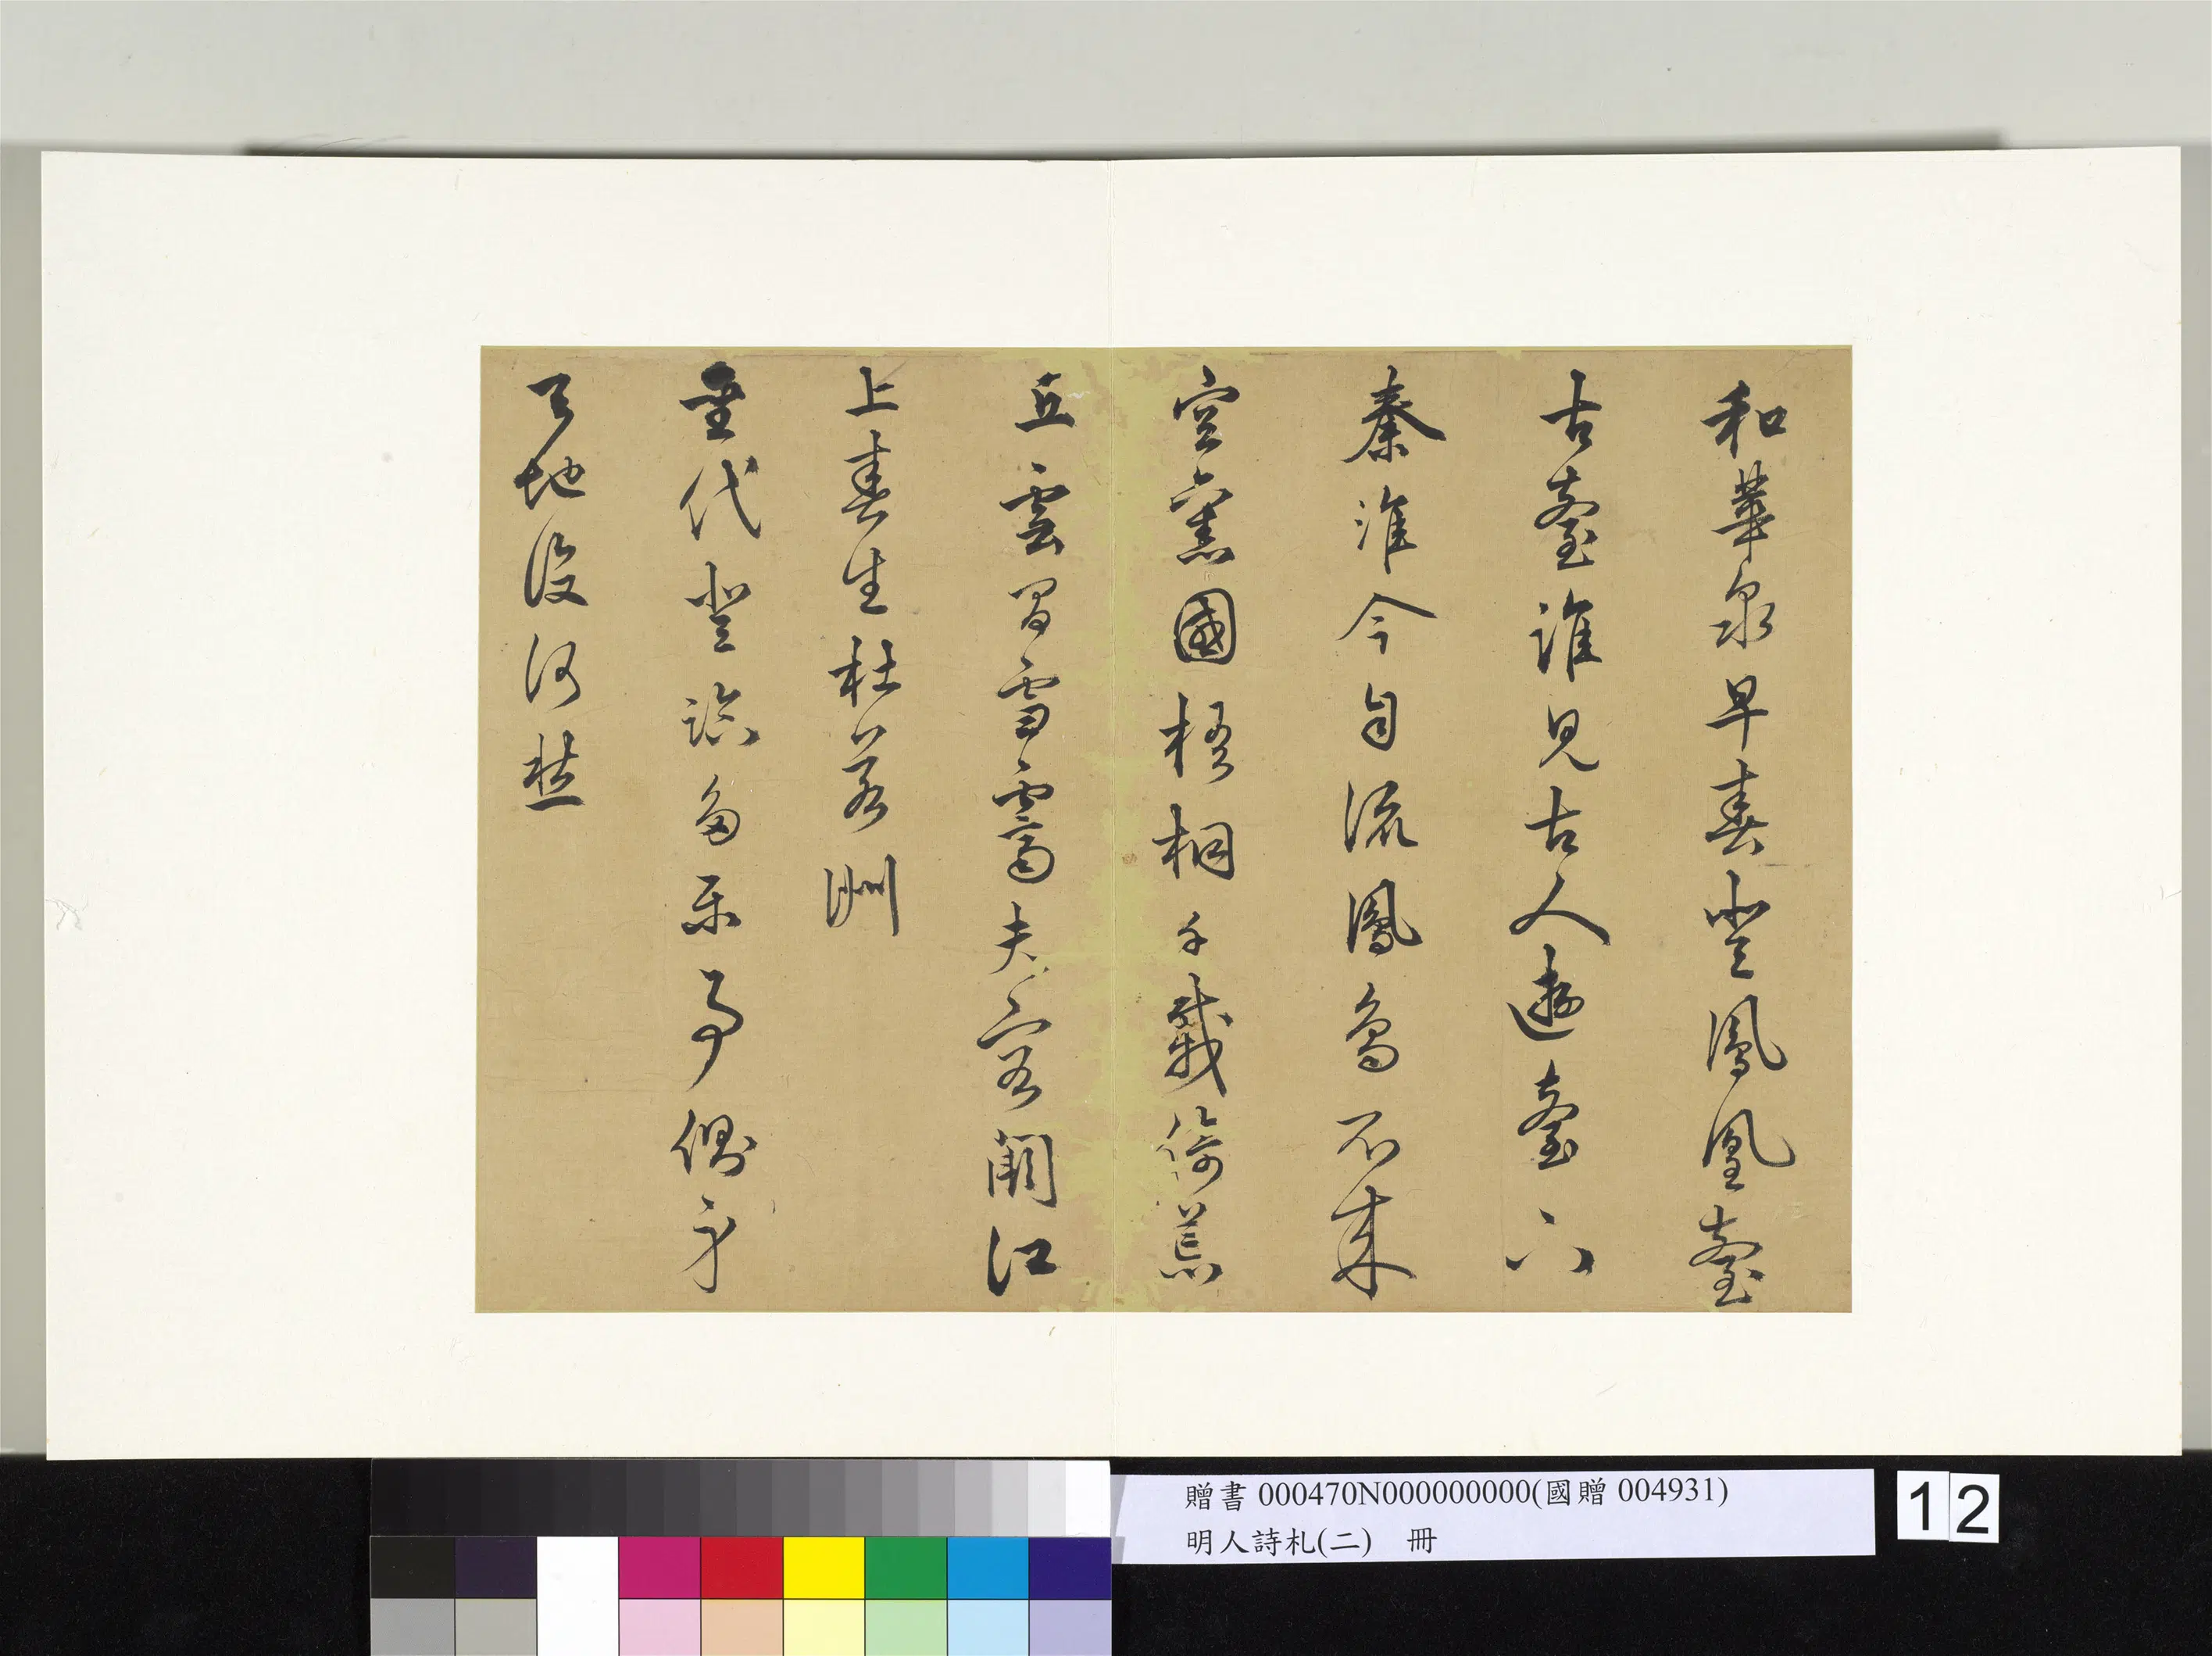 和華泉早春登鳳凰臺
古臺誰見古人遊臺下
秦淮今自流鳳鳥不來
空舊國梧桐千載倚荒
丘雲間雪霽夫容闕江
上春生杜若洲
聖代登臨多樂事側身
天地復何愁
贈書 000470N000000000(國贈 004931)
明人詩札(二) 冊
12